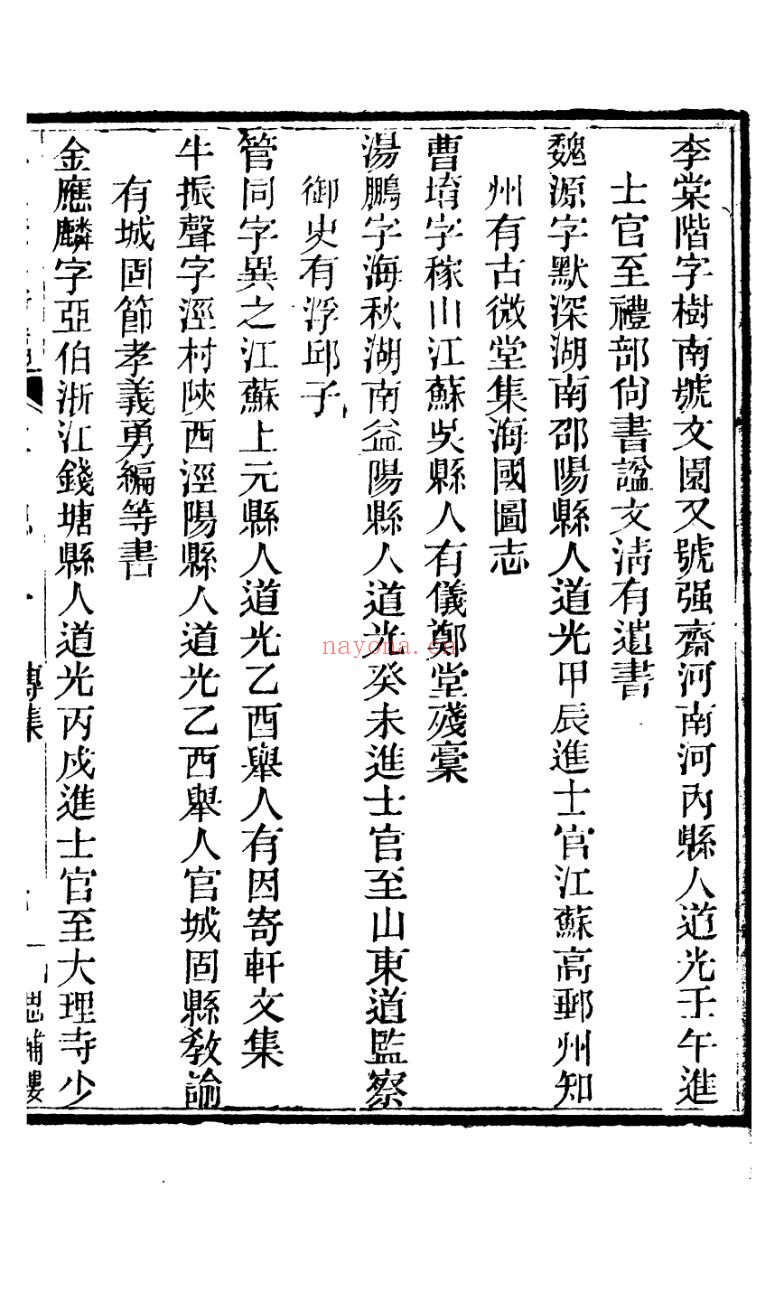 李棠階字樹南號文園又號强齋河南河內縣人道光壬午進
士官至禮部尙書諡文淸有遺書
魏源字默深湖南邵陽縣人道光甲辰進士官江蘇高郵州知
州有古微堂集海國圖志
曹堉字稼山江蘇吳縣人有儀鄭堂殘稾
湯鵬字海秋湖南益陽縣人道光癸未進士官至山東道監察
御史有浮邱子
管同字異之江蘇上元縣人道光乙酉舉人有因寄軒文集
牛振聲字涇村陜西涇陽縣人道光乙酉舉人官城固縣敎諭
有城固節孝義勇編等書
金應麟字亞伯浙江錢塘縣人道光丙戍進士官至大理寺少
專集
思補樓
nayona.cn